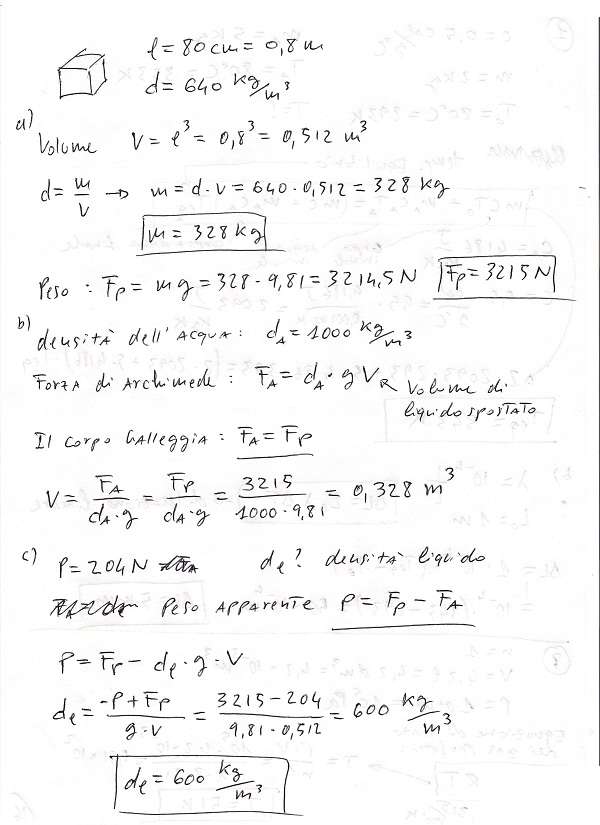 l = 80 cm = 0,8 m
d = 640 kg/m³
a)
Volume V = l³ = 0,8³ = 0,512 m³
d = m/V → m = d·V = 640·0,512 = 328 kg
m = 328 kg
Peso : Fp = mg = 328·9,81 = 3214,5 N Fp = 3215 N
b)
densità dell'Acqua : dA = 1000 kg/m³
Forza di Archimede : FA = dA·g V Volume di
liquido spostato
Il corpo galleggia : FA = Fp
V = FA/dA·g = Fp/dA·g = 3215/1000·9,81 = 0,328 m³
c) P = 204 N dl? densità liquido
Peso Apparente P = Fp − FA
P = Fp − dl·g·V
dl = −P + Fp/g·V = 3215 − 204/9,81·0,512 = 600 kg/m³
dl = 600 kg/m³